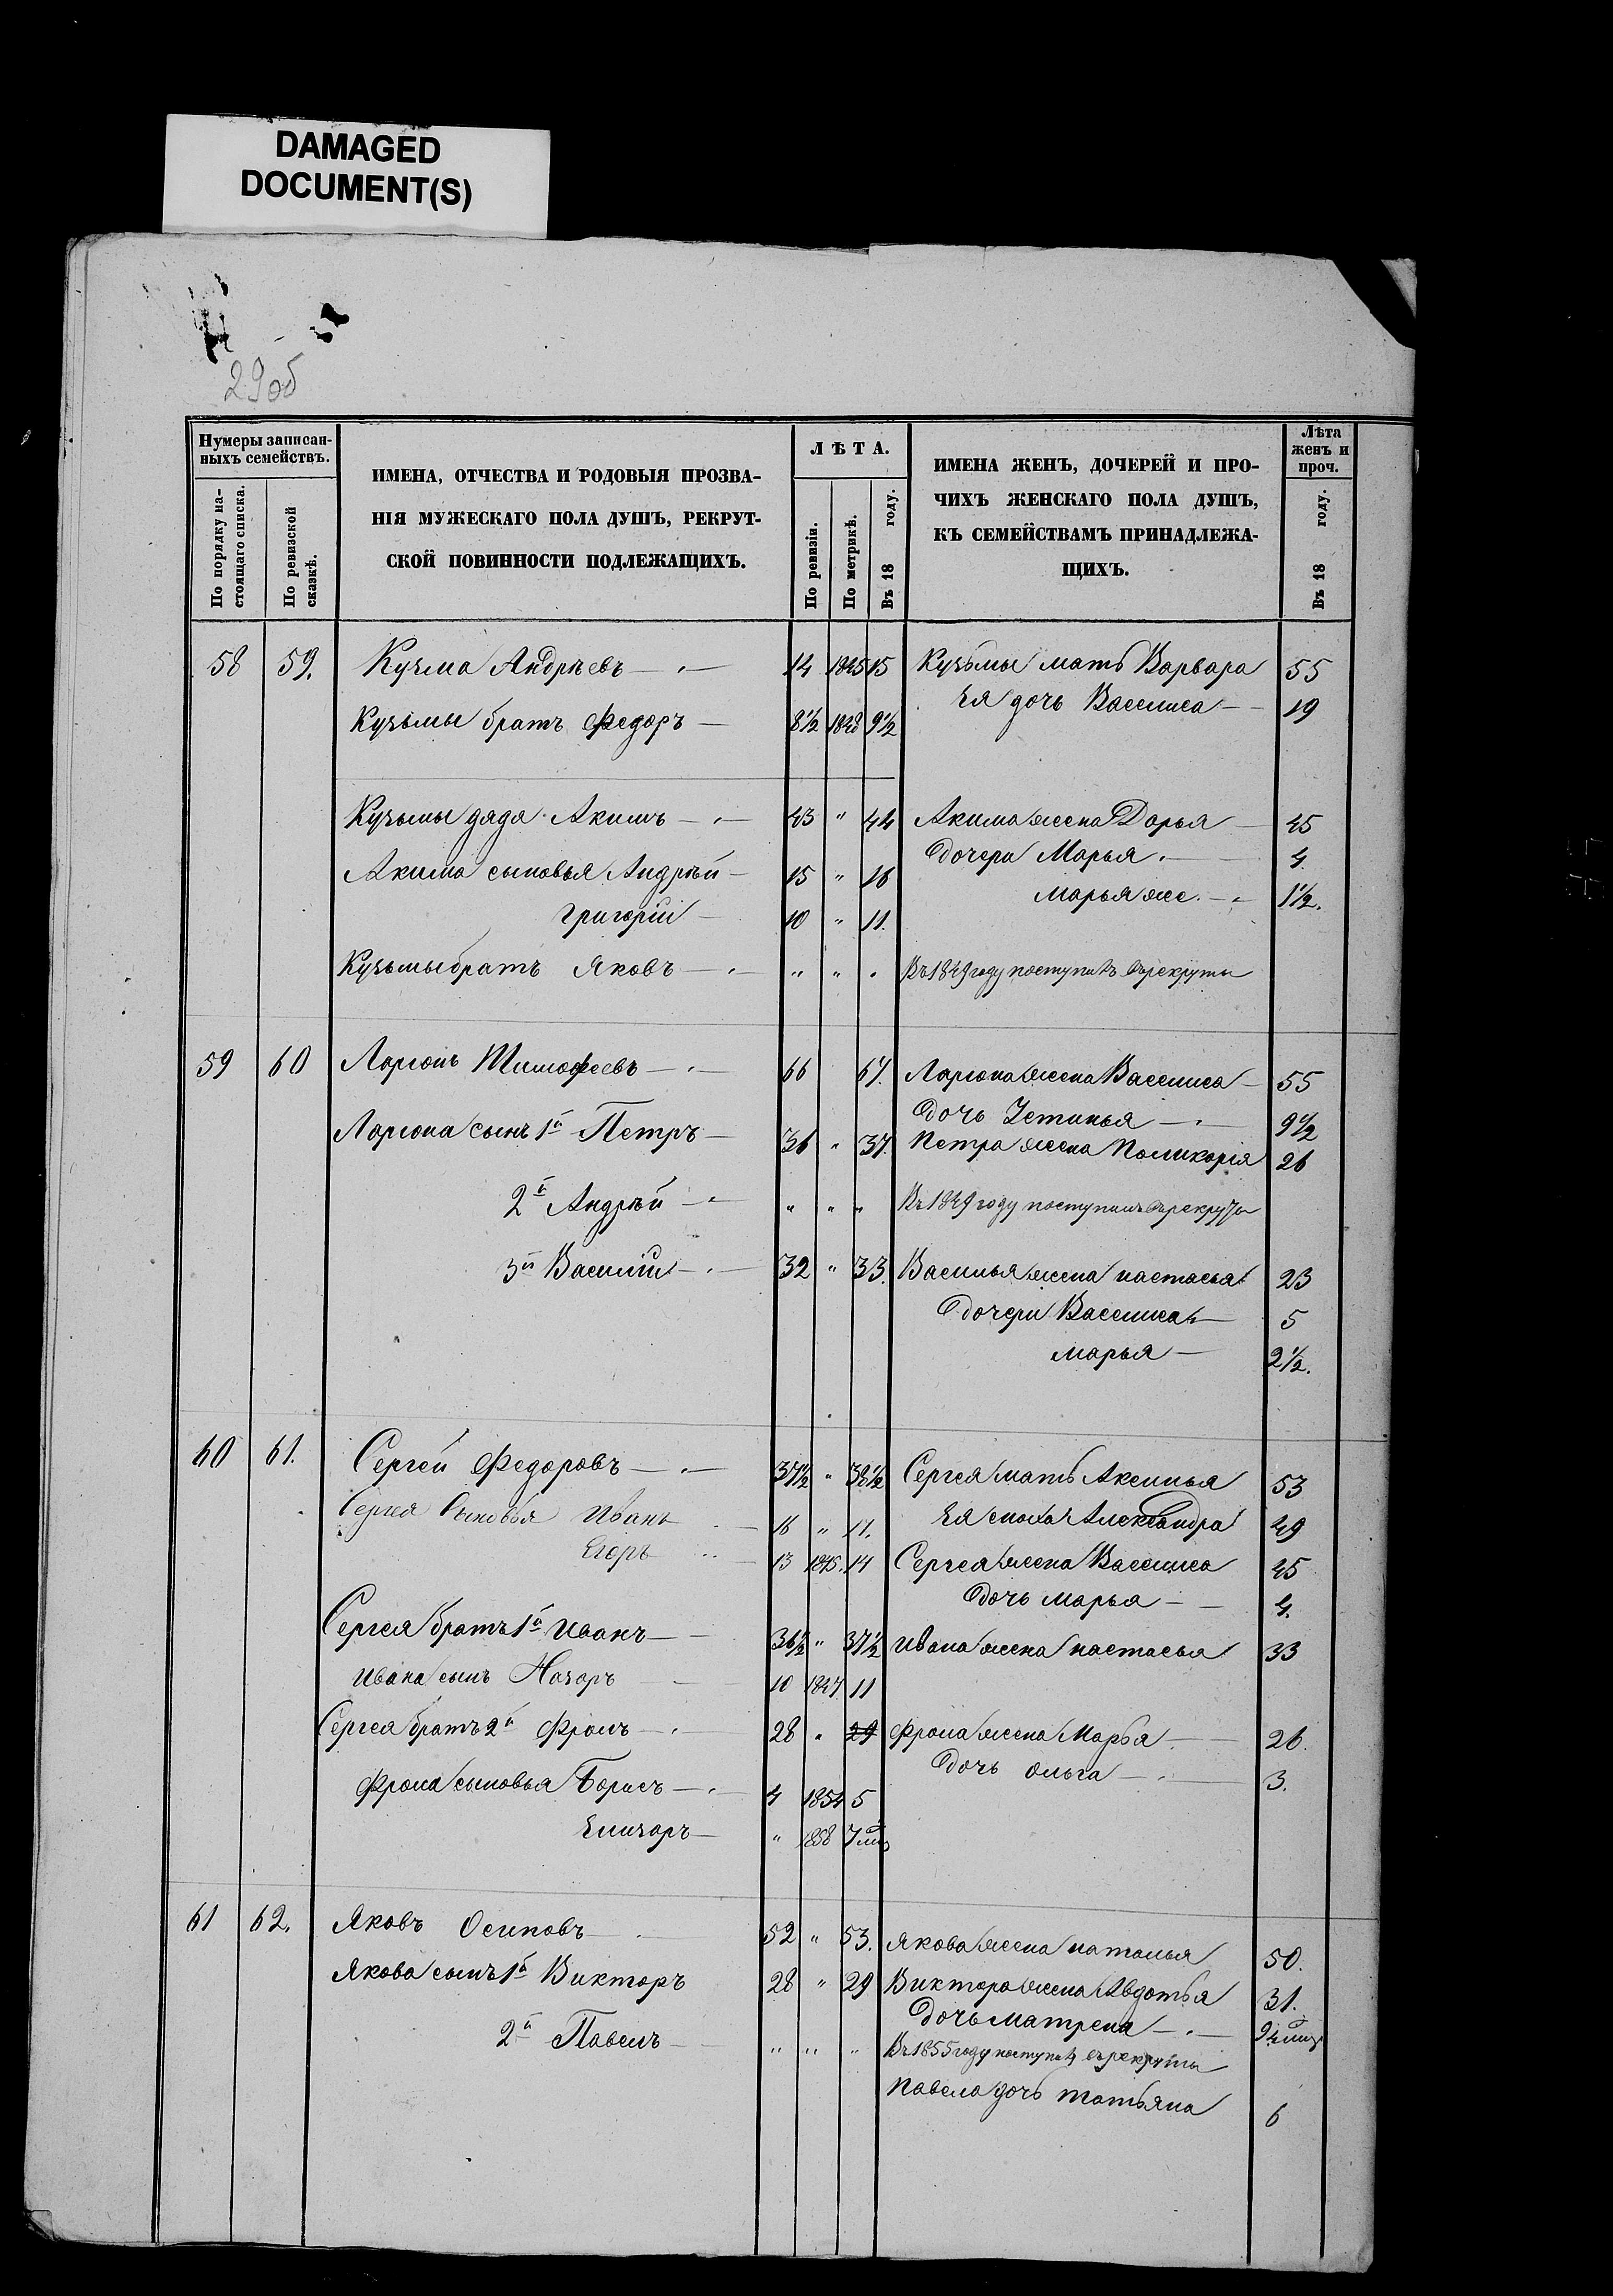 DAMAGED
DOCUMENT(S)
29 об
Нумеры записан-
ныхъ семействъ.
По порядку на-
стоящаго списка.
По ревизской
сказкѣ.
ИМЕНА, ОТЧЕСТВА И РОДОВЫЯ ПРОЗВА-
НІЯ МУЖЕСКАГО ПОЛА ДУШЪ, РЕКРУТ-
СКОЙ ПОВИННОСТИ ПОДЛЕЖАЩИХЪ.
ЛѢТА.
По ревизіи.
По метрикѣ.
Въ 18 году.
ИМЕНА ЖЕНЪ, ДОЧЕРЕЙ И ПРО-
ЧИХЪ ЖЕНСКАГО ПОЛА ДУШЪ,
КЪ СЕМЕЙСТВАМЪ ПРИНАДЛЕЖА-
ЩИХЪ.
Лѣта
женъ и
проч.
Въ 18 году.
58 59. Кузма Андрѣевъ — 14 1845 15 Кузьмы мать Варвара 55
Ея дочь Василиса — 19
Кузьмы братъ Федоръ — 8½ 1848 9½
Кузьмы дядя Акимъ — 43 " 44 Акима жена Дарья — 45
Дочери Марья — 4.
Акима сыновья Андрѣй — 15 " 16
Марья же — 1½.
Григорій — 10 " 11.
Кузьмы братъ Яковъ — " " " Въ 1849 году поступилъ въ рекруты
59 60 Ларіонъ Тимофеевъ — 66 67. Ларіона жена Василиса — 55
Дочь Устинья — 9½
Ларіона сынъ 1й Петръ — 36 " 37. Петра жена Поликарія 26
2й Андрѣй — " " " Въ 1849 году поступилъ въ рекруты
3й Василій — 32 " 33. Василья жена настасья 23
Дочери Василиса — 5
марья — 2½.
60 61. Сергей Федоровъ — 37½ " 38½ Сергея мать Аксинья 53
Сергея Сыновья Иванъ — 16 " 11. Ея Александра 49
Егоръ — 13 1845. 14 Сергея жена Василиса 45
Дочь марья — 4.
Сергея братъ 1й Иванъ — 36½ " 37½ Ивана жена настасья 33
Ивана сынъ Назаръ — 10 1847 11
Сергея братъ 2й Фролъ — 28 " 29 Фрола жена Марья — 26.
Дочь Ольга — 3.
Фрола сыновья Борисъ — 4 1854 5
Елизаръ — " 1858 7 мц
61 62. Яковъ Осиповъ — 52 " 53. Якова жена наталья 50.
Якова сынъ 1й Викторъ 28 " 29 Виктора жена Авдотья 31.
Дочь матрена —
2й Павелъ — " " " Въ 1855 году поступилъ въ рекруты
Павела дочь татьяна 6